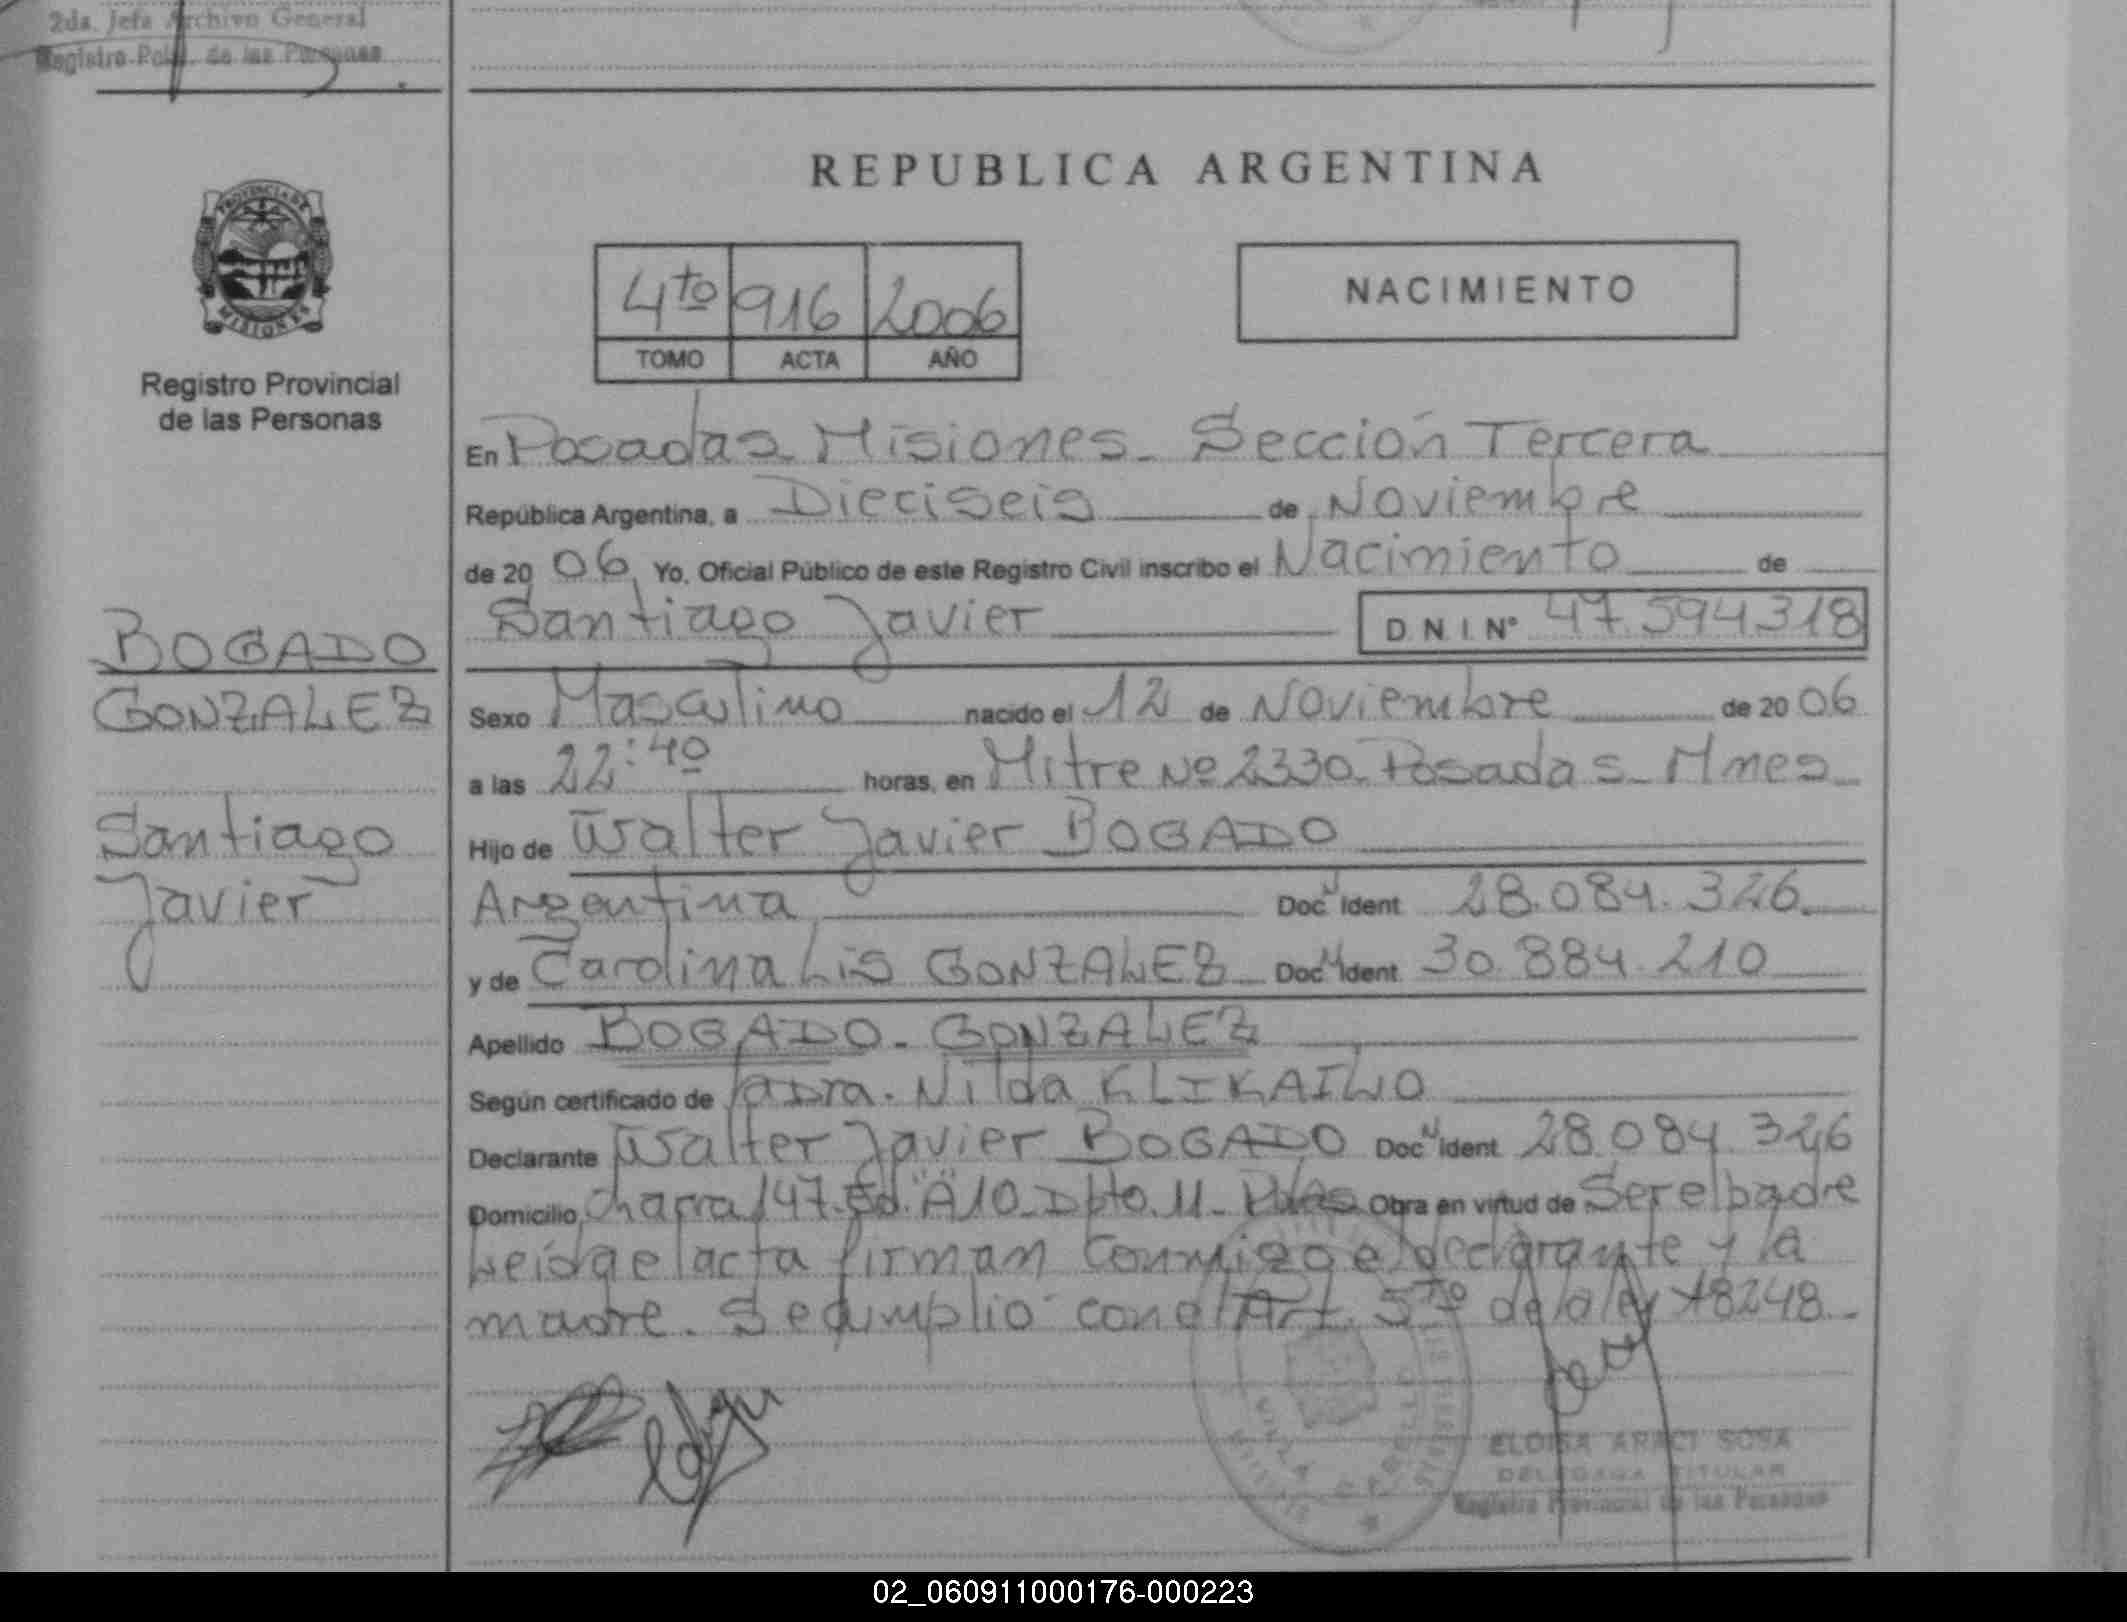 2da. Jefa Archivo General
Registro Pcial. de las Personas
REPUBLICA ARGENTINA
PROVINCIA DE
MISIONES
Registro Provincial
de las Personas
4to 916 2006
TOMO ACTA AÑO
NACIMIENTO
En Posadas Misiones. Sección Tercera
República Argentina, a Dieciseis de Noviembre
de 2006 Yo, Oficial Público de este Registro Civil inscribo el Nacimiento de
Santiago Javier D N I Nº 47.594318
BOGADO
GONZALEZ
Santiago
Javier
Sexo Masculino nacido el 12 de Noviembre de 2006
a las 22:40 horas, en Mitre Nº 2330. Posadas - Mnes
Hijo de Walter Javier BOGADO
Argentina Doc Ident 28.084.326.
y de Carolina Lis GONZALEZ Doc Ident 30.884.210
Apellido BOGADO - GONZALEZ
Según certificado de la Dra. Nilda KLIKAILO
Declarante Walter Javier BOGADO Doc Ident 28.084.326
Domicilio Chacra 147. Ed. "A" 10 - Dpto. 11 - Pdas Obra en virtud de Ser el padre
Leída el acta firman conmigo el declarante y la
madre. Se cumplio con el Art. 5to de la ley 18248.-
ELOISA ARACI SOSA
DELEGADA TITULAR
Registro Provincial de las Personas
02_060911000176-000223